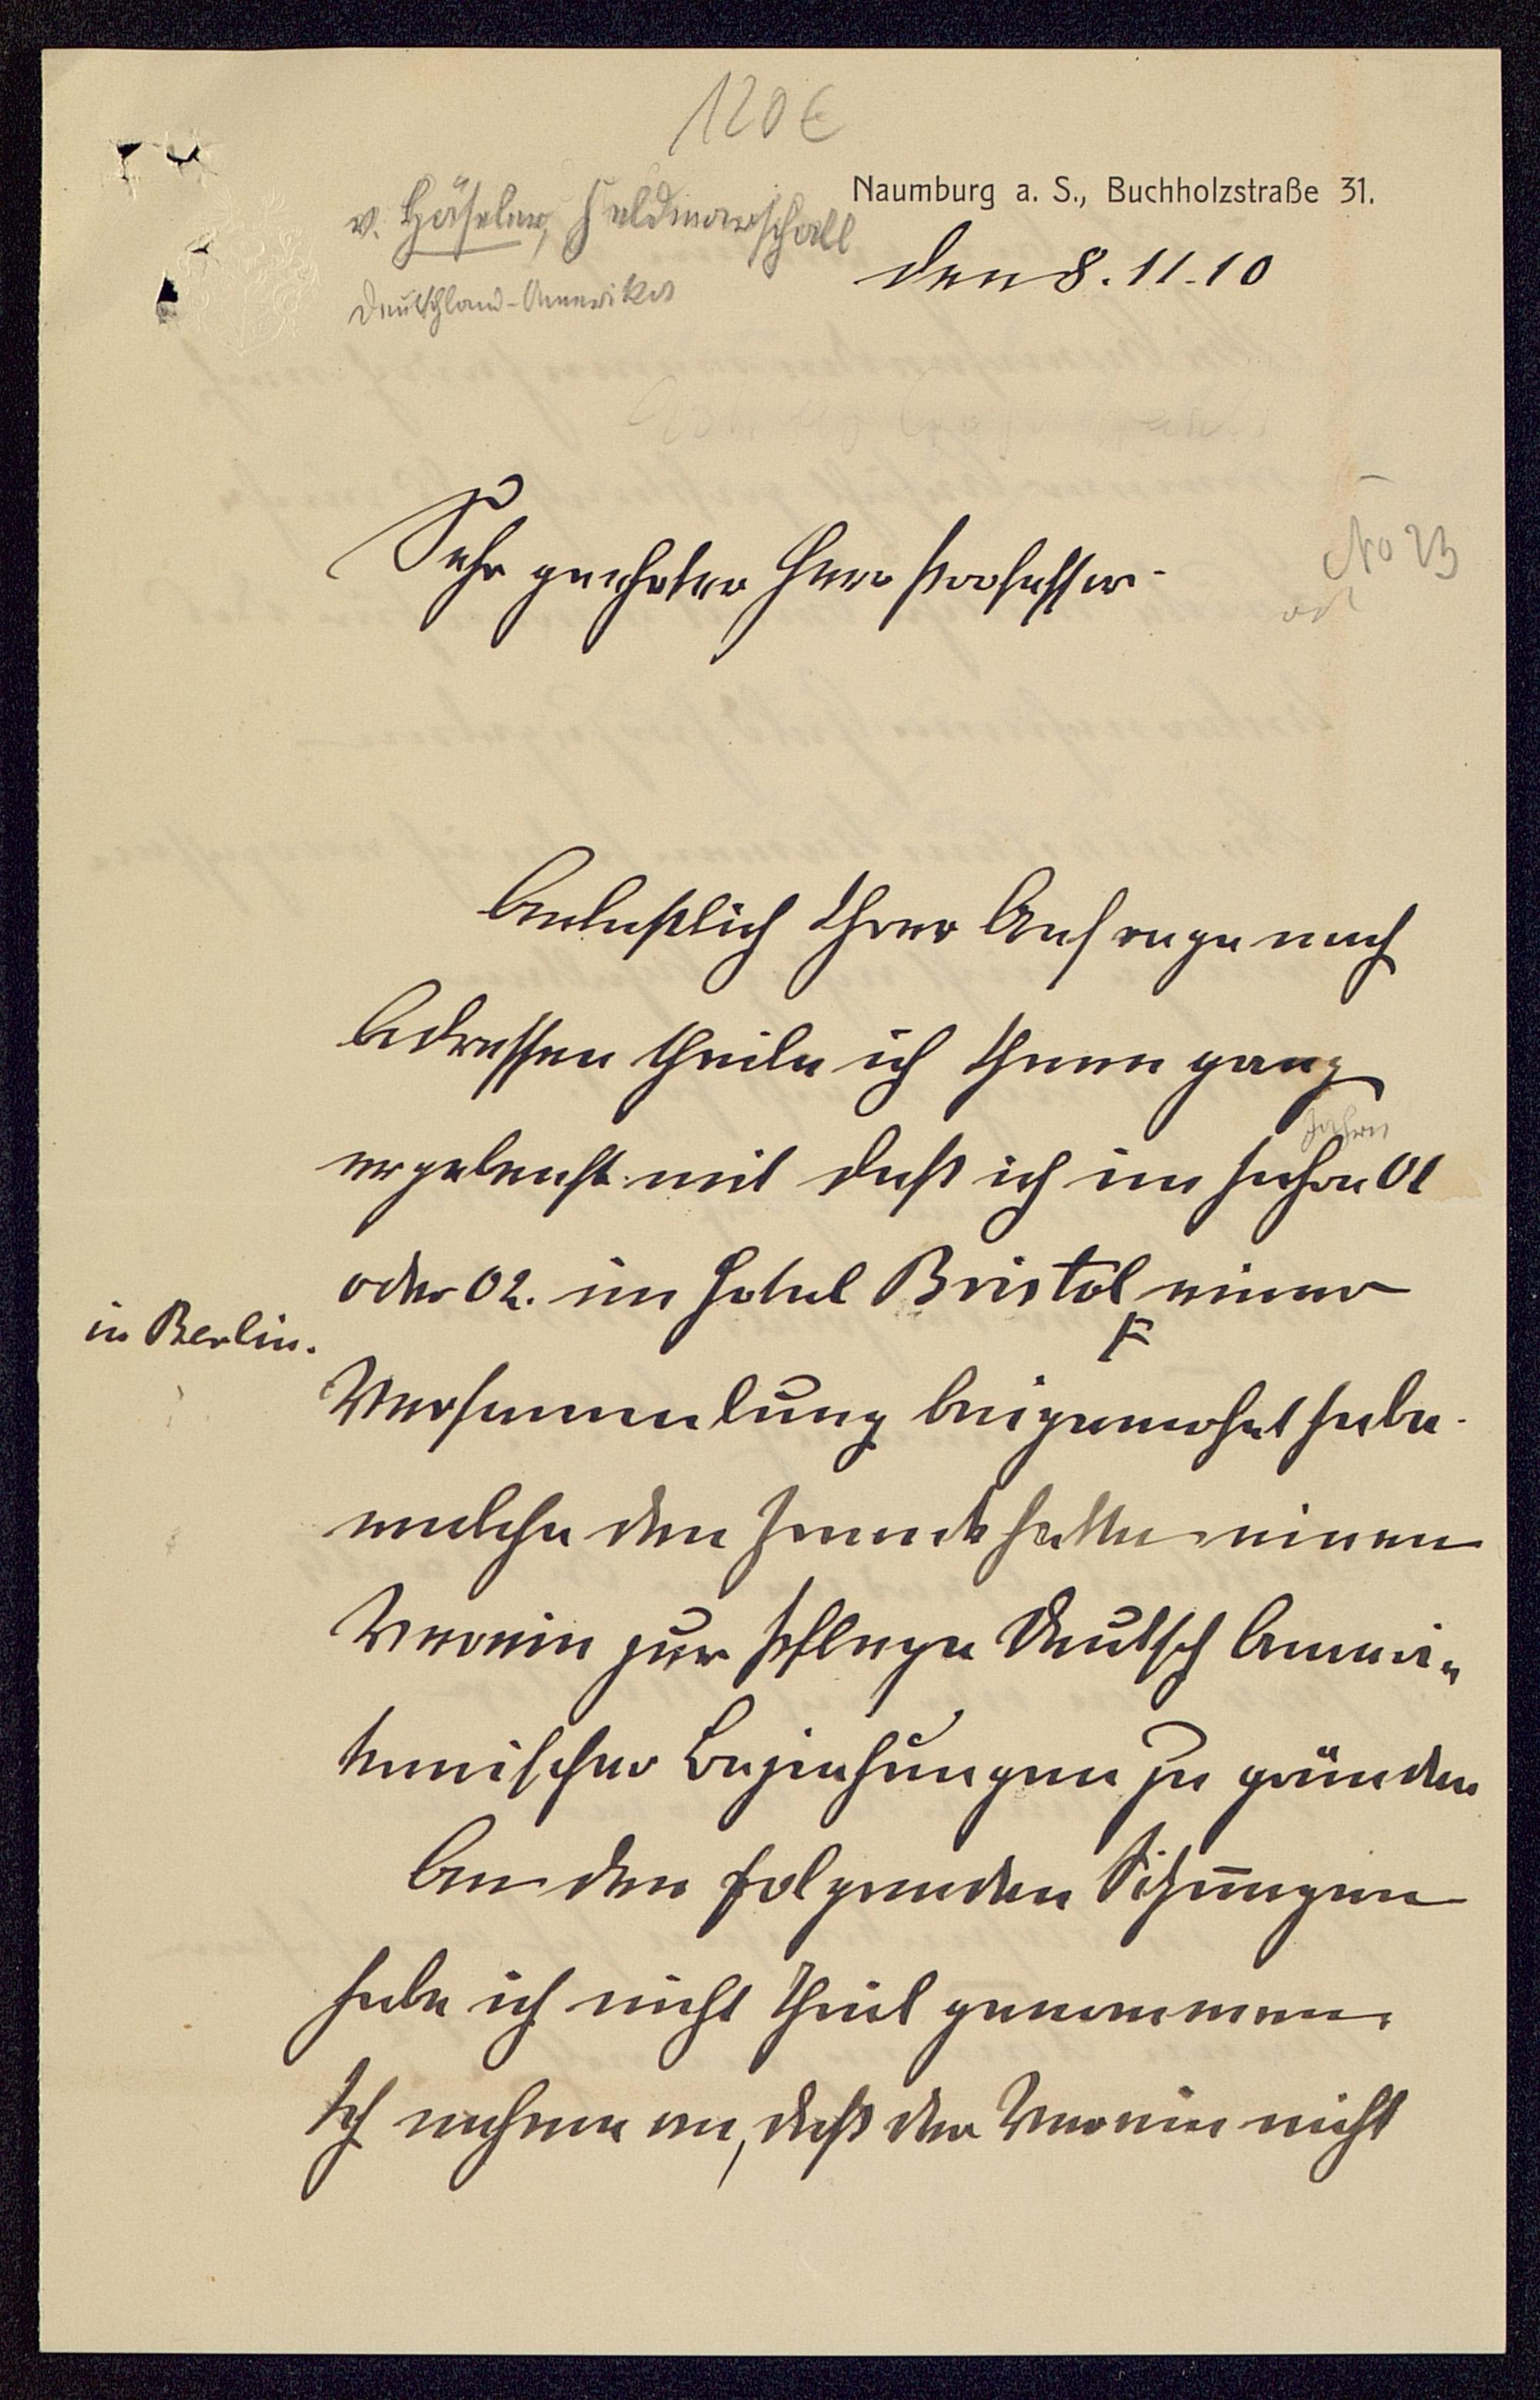 120 €
Naumburg a. S., Buchholzstraße 31.
v. Häseler, Feldmarschall
Deutschland-Amerika
den 8. 11. 10
Sehr geehrter Herr Professor
No 23
Anläßlich Ihrer Anfrage nach
Adressen theile ich Ihnen ganz
Jahre
ergebenst mit daß ich im Jahre 01
oder 02. im Hotel Bristol F einer
in Berlin.
Versammlung beigewohnt habe
welche den Zweck hatte einen
Verein zur Pflege Deutsch Ameri-
kanischer Beziehungen zu gründen
An den folgenden Sitzungen
habe ich nicht Theil genommen.
Ich nehme an, daß der Verein nicht